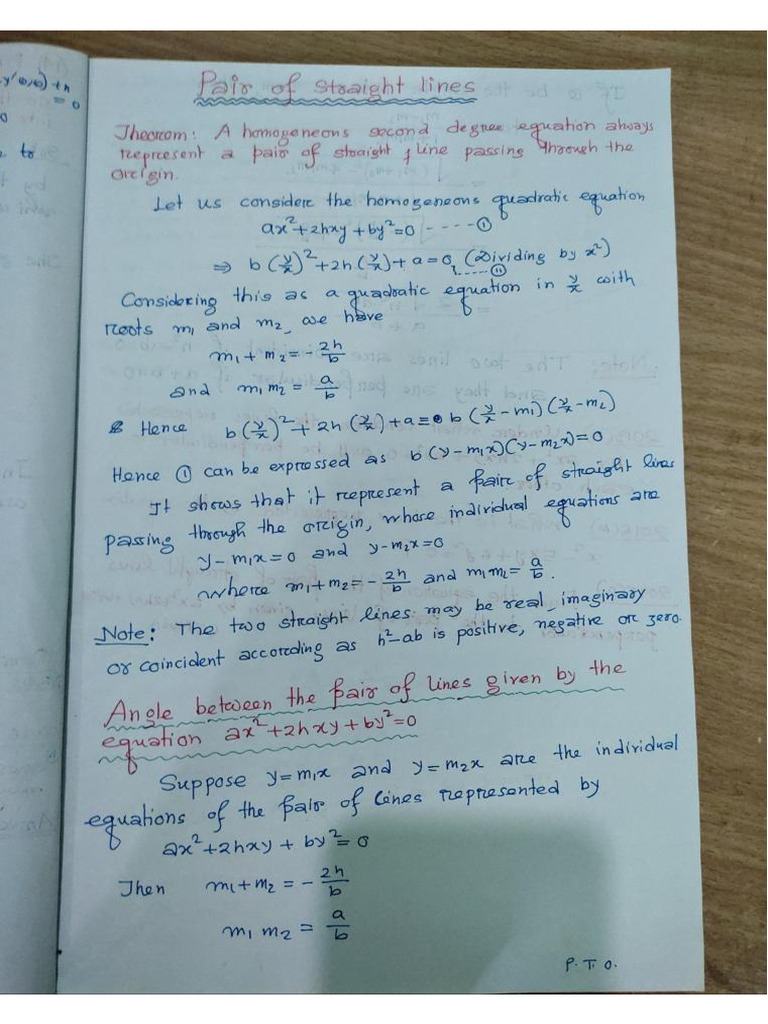 Pair of straight lines
Theorem: A homogeneous second degree equation always
represent a pair of straight line passing through the
origin.
Let us consider the homogeneous quadratic equation
ax²+2hxy+by²=0 ----①
⇒ b(y/x)²+2h(y/x)+a=0 (Dividing by x²)
----⑪
Considering this as a quadratic equation in y/x with
roots m₁ and m₂, we have
m₁+m₂=-2h/b
and m₁m₂=a/b
Hence b(y/x)²+2h(y/x)+a≡b(y/x-m₁)(y/x-m₂)
Hence ① can be expressed as b(y-m₁x)(y-m₂x)=0
It shows that it represent a pair of straight lines
passing through the origin, whose individual equations are
y-m₁x=0 and y-m₂x=0
where m₁+m₂=-2h/b and m₁m₂=a/b.
Note: The two straight lines may be real, imaginary
or coincident according as h²-ab is positive, negative or zero.
Angle between the pair of lines given by the
equation ax²+2hxy+by²=0
Suppose y=m₁x and y=m₂x are the individual
equations of the pair of lines represented by
ax²+2hxy+by²=0
Then m₁+m₂=-2h/b
m₁m₂=a/b
P.T.O.